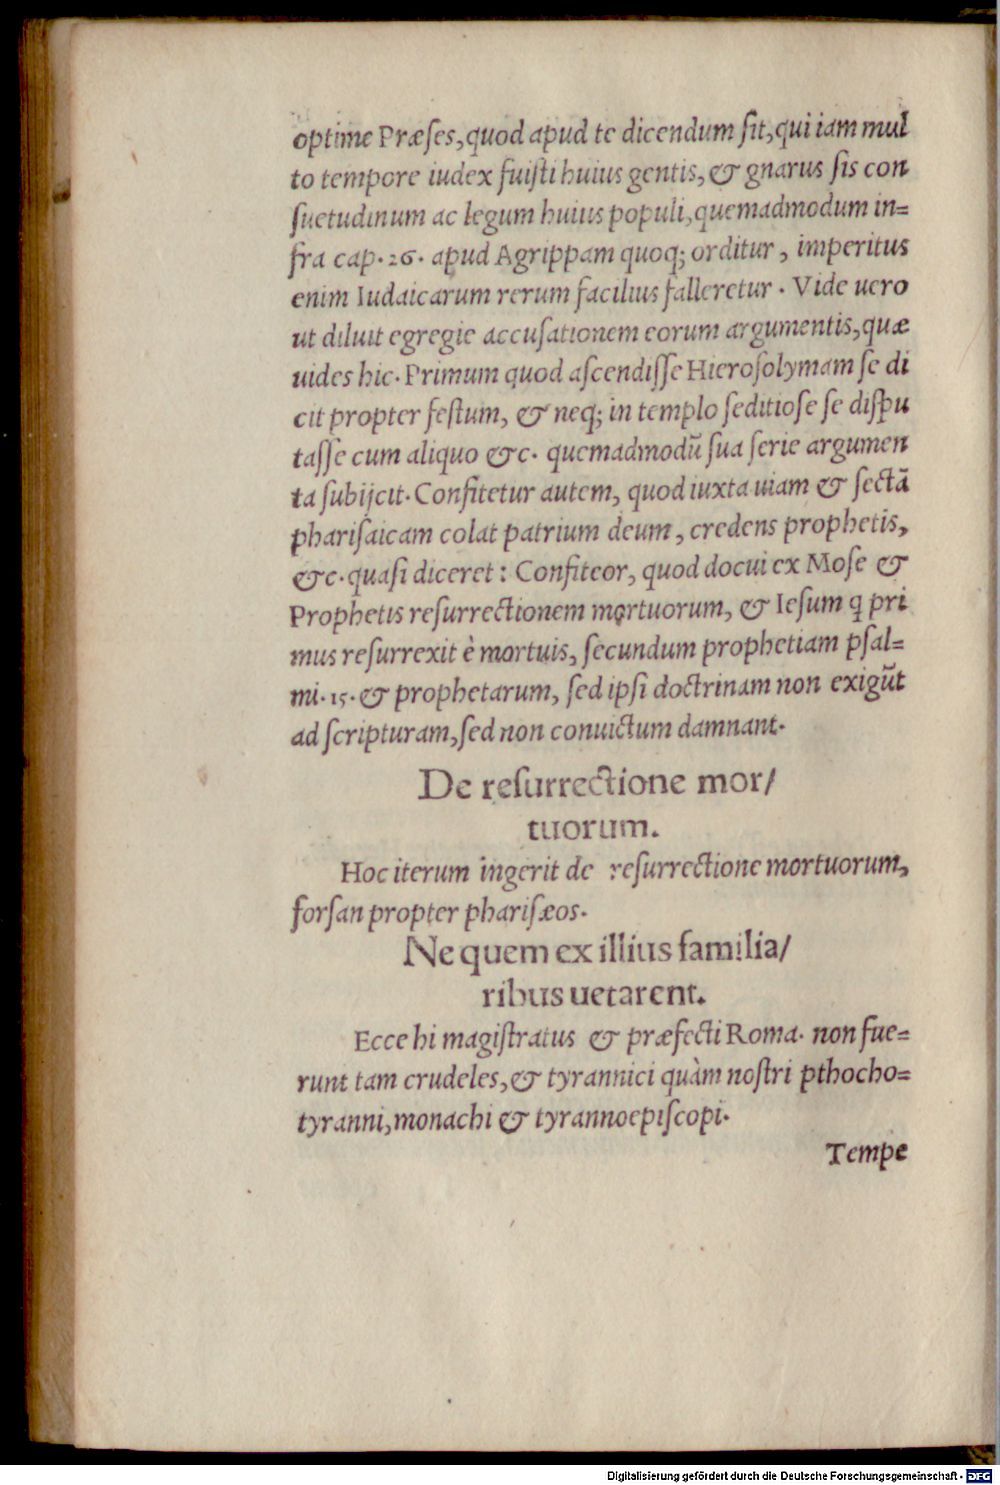 optime Præſes, quod apud te dicendum ſit, qui iam mul
to tempore iudex fuiſti huius gentis, & gnarus ſis con
ſuetudinum ac legum huius populi, quemadmodum in=
fra cap. 26. apud Agrippam quoq; orditur, imperitus
enim Iudaicarum rerum facilius falleretur. Vide uero
ut diluit egregie accuſationem eorum argumentis, quæ
uides hic. Primum quod aſcendiſſe Hieroſolymam ſe di
cit propter feſtum, & neq; in templo ſeditioſe ſe diſpu
taſſe cum aliquo &c. quemadmodū ſua ſerie argumen
ta ſubijcit. Confitetur autem, quod iuxta uiam & ſectā
phariſaicam colat patrium deum, credens prophetis,
&c. quaſi diceret: Confiteor, quod docui ex Moſe &
Prophetis reſurrectionem mortuorum, & Ieſum q̃ pri
mus reſurrexit è mortuis, ſecundum prophetiam pſal=
mi. 15. & prophetarum, ſed ipſi doctrinam non exigūt
ad ſcripturam, ſed non conuictum damnant.
De reſurrectione mor/
tuorum.
Hoc iterum ingerit de reſurrectione mortuorum,
forſan propter phariſæos.
Ne quem ex illius familia/
ribus uetarent.
Ecce hi magiſtratus & præfecti Roma. non fue=
runt tam crudeles, & tyrannici quàm noſtri pthocho=
tyranni, monachi & tyrannoepiſcopi.
Tempe
Digitalisierung gefördert durch die Deutsche Forschungsgemeinschaft - DFG